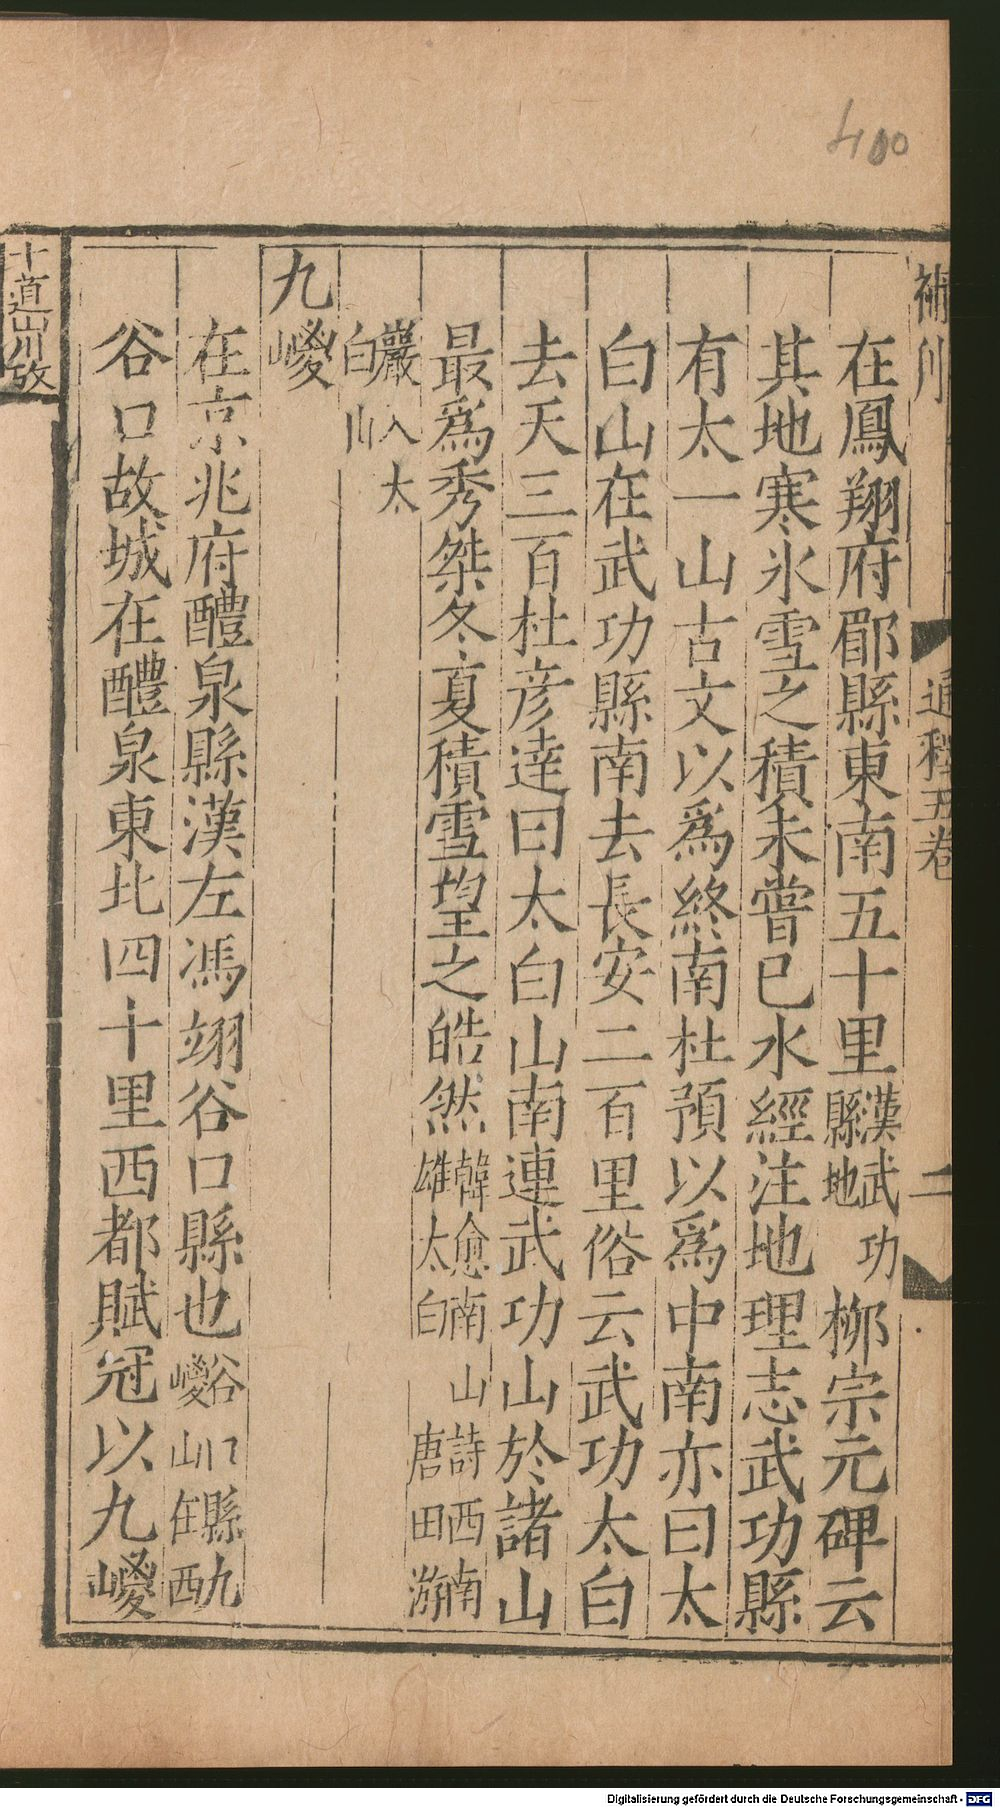 400
在鳳翔府郿縣東南五十里漢武功縣地柳宗元碑云
其地寒氷雪之積未嘗已水經注地理志武功縣
有太一山古文以爲終南杜預以爲中南亦曰太
白山在武功縣南去長安二百里俗云武功太白
去天三百杜彦逹曰太白山南連武功山於諸山
最爲秀桀冬夏積雪望之皓然韓愈南山詩西南雄太白唐田游
巖入太白山
九嵕
在京兆府醴泉縣漢左馮翊谷口縣也谷口縣九嵕山在西
谷口故城在醴泉東北四十里西都賦冠以九嵕
通程五卷
二
十道山川攷
Digitalisierung gefördert durch die Deutsche Forschungsgemeinschaft - DFG